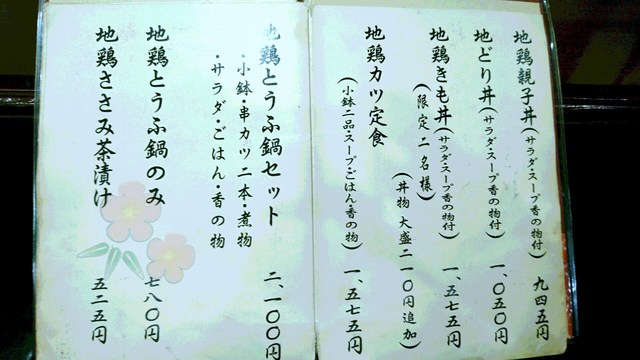 地鶏親子丼（サラダ・スープ香の物付） 九四五円
地どり丼（サラダ・スープ香の物付） 一、〇五〇円
地鶏きも丼（サラダ・スープ香の物付） 一、五七五円
（限定二名様） （丼物 大盛二一〇円追加）
地鶏カツ定食（小鉢二品・スープ・ごはん・香の物） 一、五七五円
地鶏とうふ鍋セット 二、一〇〇円
・小鉢・串カツ二本・煮物
・サラダ・ごはん・香の物
地鶏とうふ鍋のみ 七八〇円
地鶏ささみ茶漬け 五二五円